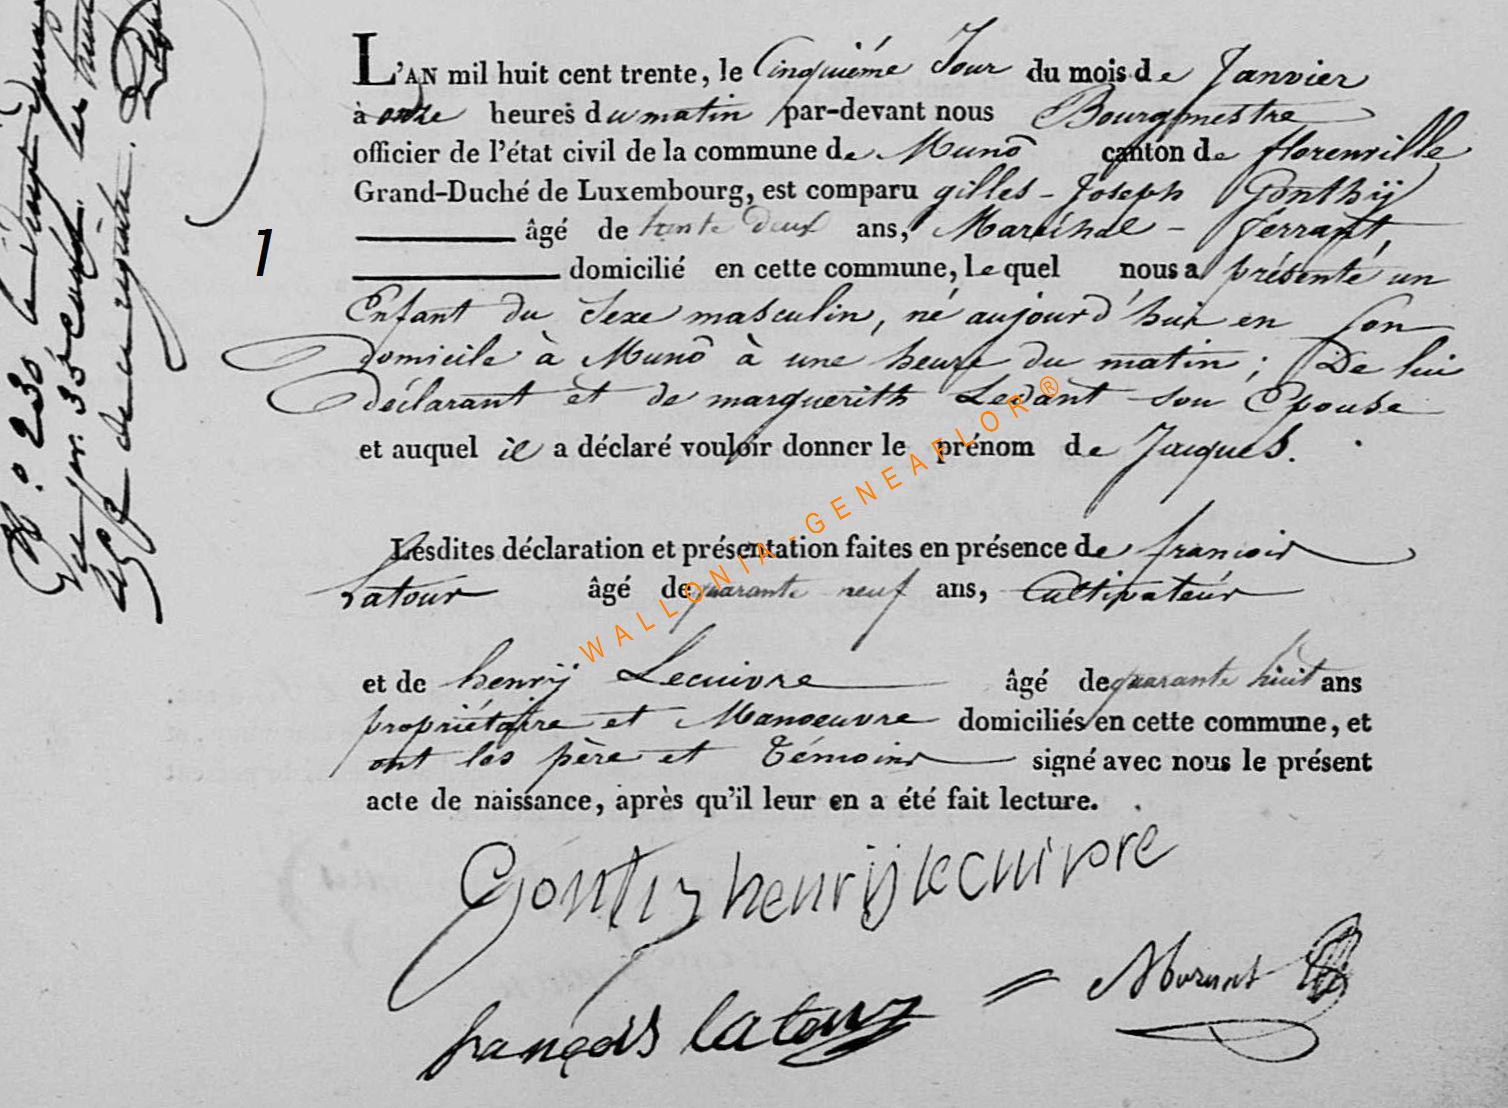 L'AN mil huit cent trente, le Cinquiéme Jour du mois de Janvier
à onze heures du matin par-devant nous Bourgmestre
officier de l'état civil de la commune de Munô canton de florenville
Grand-Duché de Luxembourg, est comparu gilles-Joseph Gonthÿ
âgé de trente deux ans, Maréchal-ferrant,
1
domicilié en cette commune, lequel nous a présenté un
Enfant du Sexe masculin, né aujourd'hui en son
domicile à Munô à une heure du matin; De lui
déclarant et de marguerith Ledant son Epouse
et auquel il a déclaré vouloir donner le prénom de Jacques.
Lesdites déclaration et présentation faites en présence de francois
Latour âgé de quarante neuf ans, Cultivateur
et de henrÿ Lecuivre âgé de quarante huit ans
propriétaire et Manoeuvre domiciliés en cette commune, et
ont les père et Témoins signé avec nous le présent
acte de naissance, après qu'il leur en a été fait lecture.
Gontiy henrÿ lecuivre
françois latour
WALLONIA-GENEAFLOR®
N.° 230